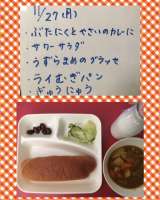 11/27(月)
・ぶたにくとやさいのカレーに
・サワーサラダ
・うずらまめのグラッセ
・ライむぎパン
・ぎゅうにゅう